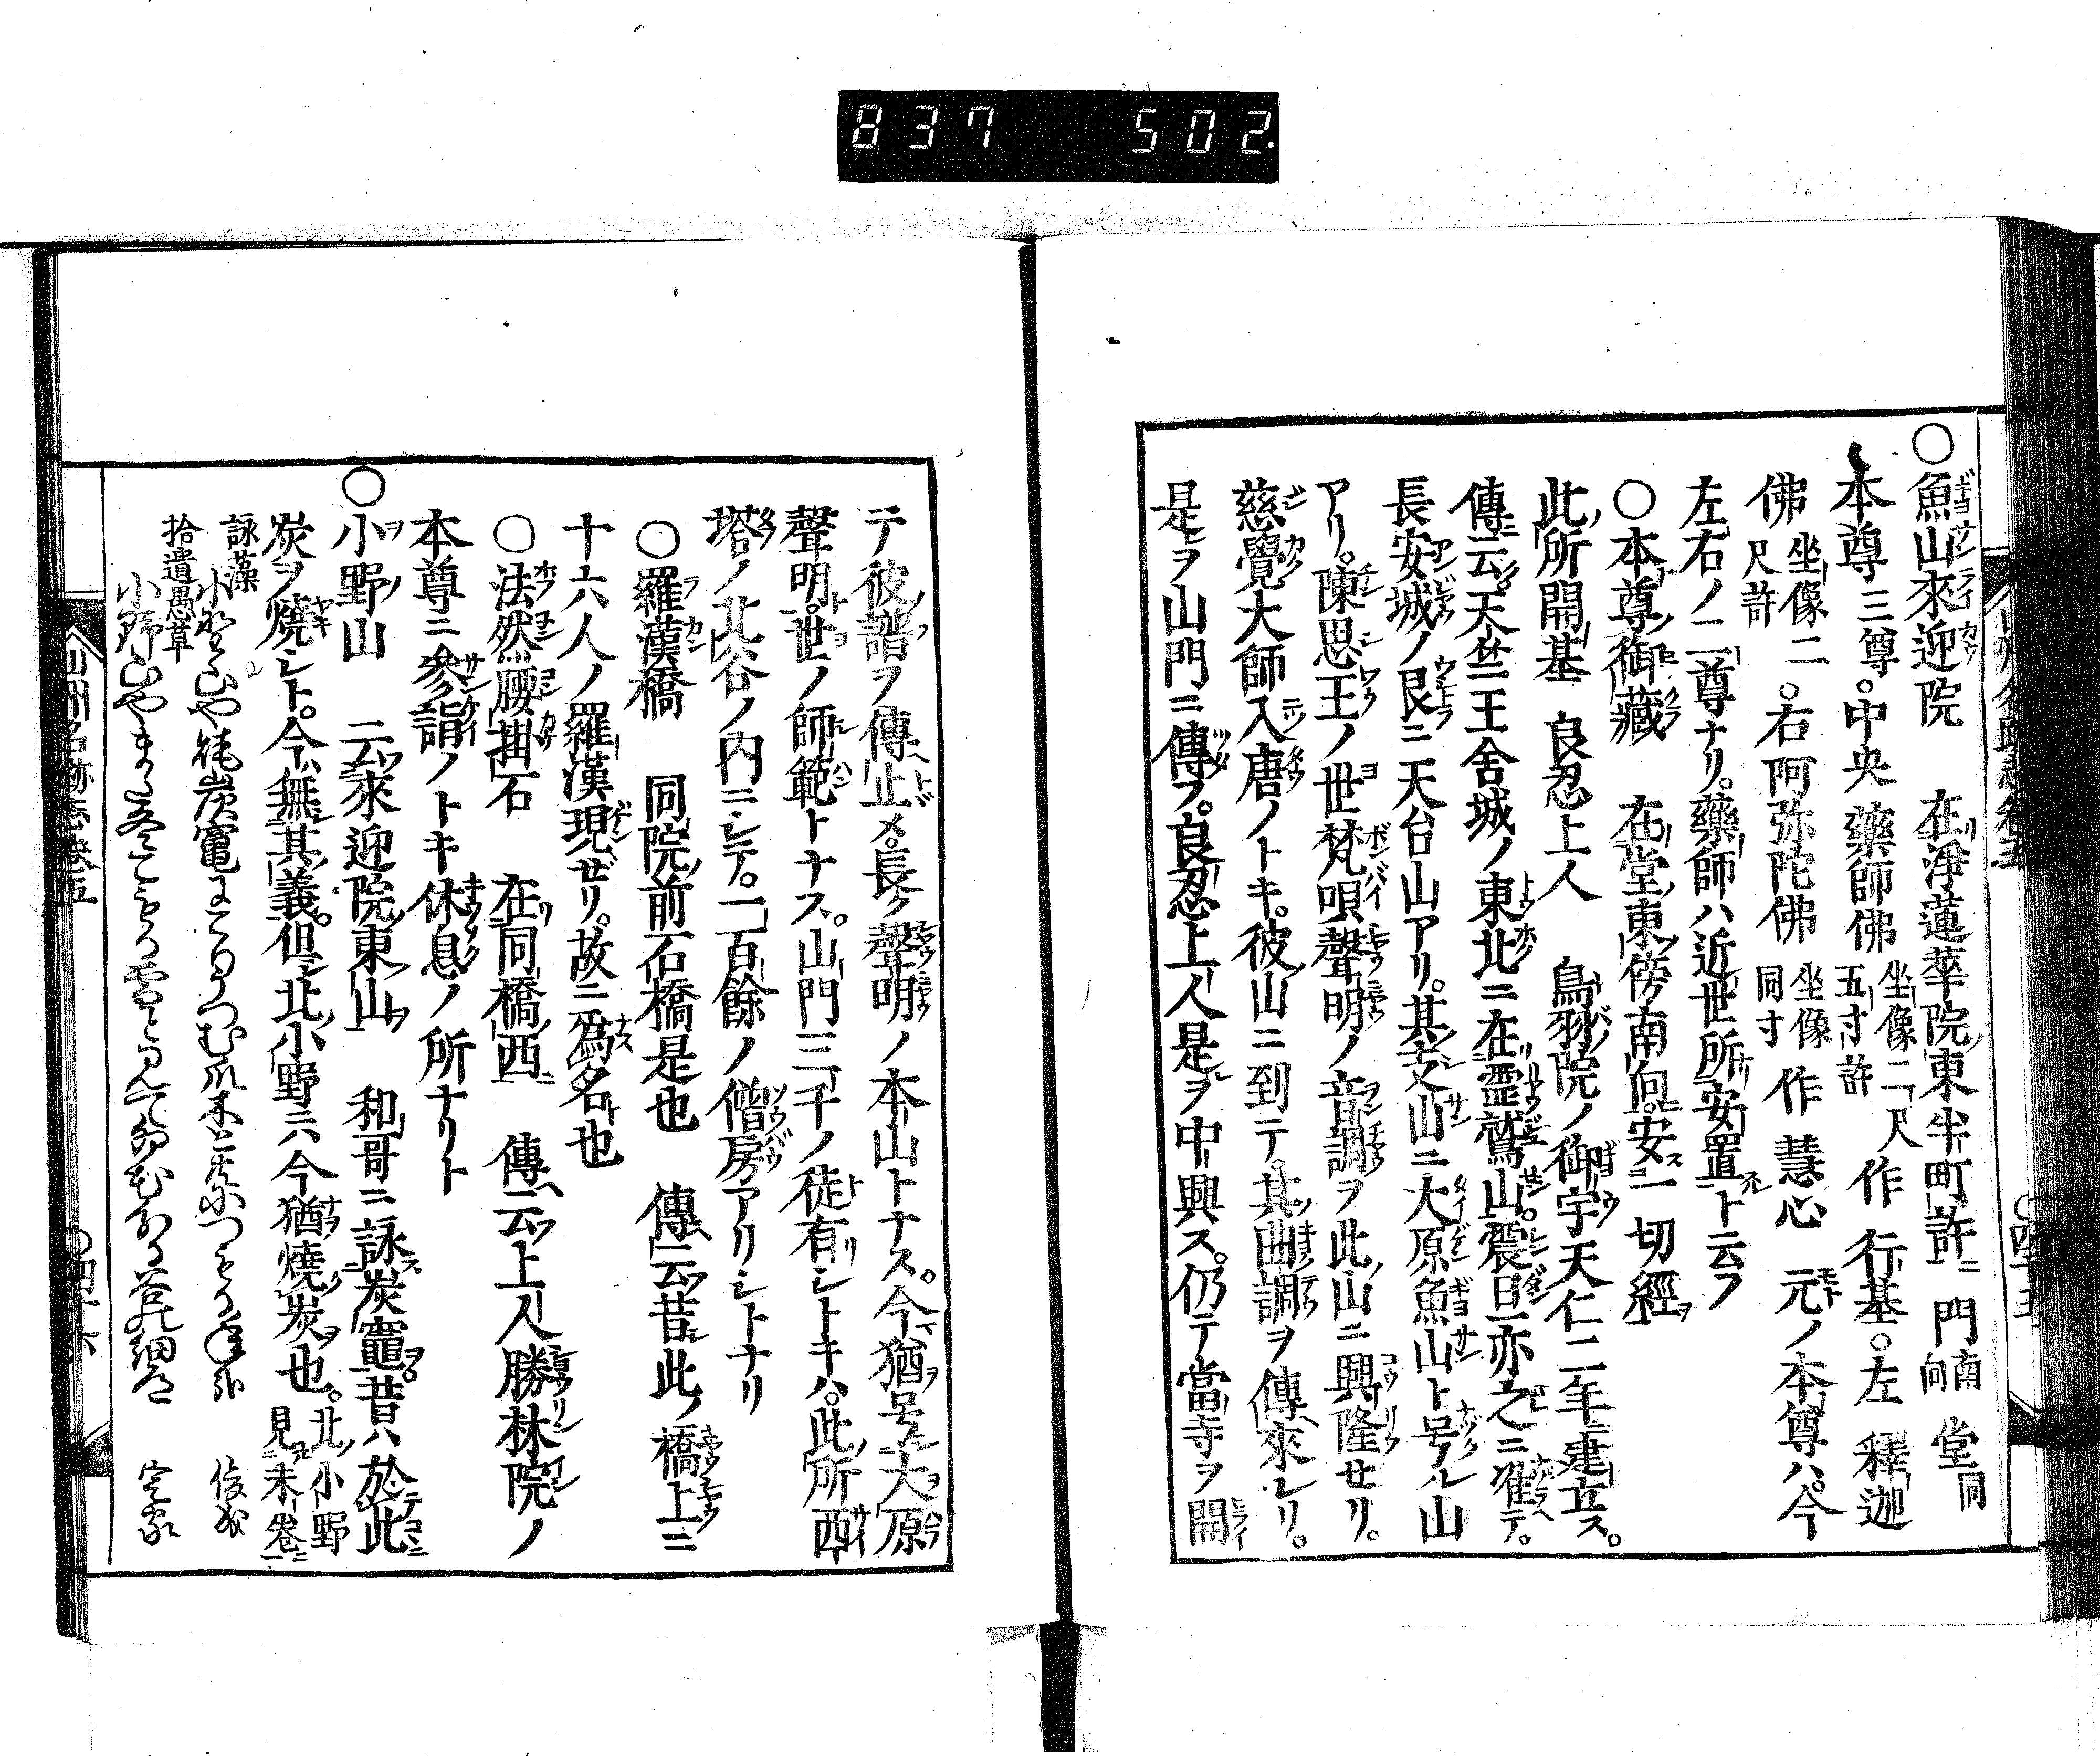 837 502.
○魚山來迎院 在淨蓮華院東半町許ニ 門南向 堂同
本尊三尊。中央 藥師佛 坐像二尺五寸許 作 行基。左 釋迦
佛 坐像二尺許 。右阿弥陀佛 坐像同寸 作 慧心 元ノ本尊ハ。今
左右ノ二尊ナリ。藥師ハ近世所安置ト云フ
○本尊御藏 在堂東傍南向。安一切經
此所開基 良忍上人 鳥羽院ノ御宇天仁二年建立ス。
傳云。天竺王舍城ノ東北ニ在靈鷲山。震旦亦之ニ准テ。
長安城ノ艮ニ天台山アリ。其支山ニ大原魚山ト号ル山
アリ。陳思王ノ世梵唄聲明ノ音調ヲ此山ニ興隆セリ。
慈覺大師入唐ノトキ。彼山ニ到テ。其曲調ヲ傳來レリ。
是ヲ山門ニ傳フ。良忍上人是ヲ中興ス。仍テ當寺ヲ開
テ彼譜ヲ傳止メ。長ク聲明ノ本山トナス。今猶号大原
聲明。世ノ師範トナス。山門三千ノ徒有シトキハ。此所西
塔ノ北谷ノ内ニシテ。一百餘ノ僧房アリシトナリ
○羅漢橋 同院前石橋是也 傳云昔此ノ橋上ニ
十六人ノ羅漢現セリ。故ニ爲名也
○法然腰掛石 在同橋西 傳云上人勝林院ノ
本尊ニ參詣ノトキ休息ノ所ナリト
○小野山 云來迎院東山 和哥ニ詠炭竈。昔ハ於此
炭ヲ燒シト。今無其義。但北小野ニハ今猶燒炭也。北小野見末卷
詠藻
拾遺愚草
山州名跡志卷五